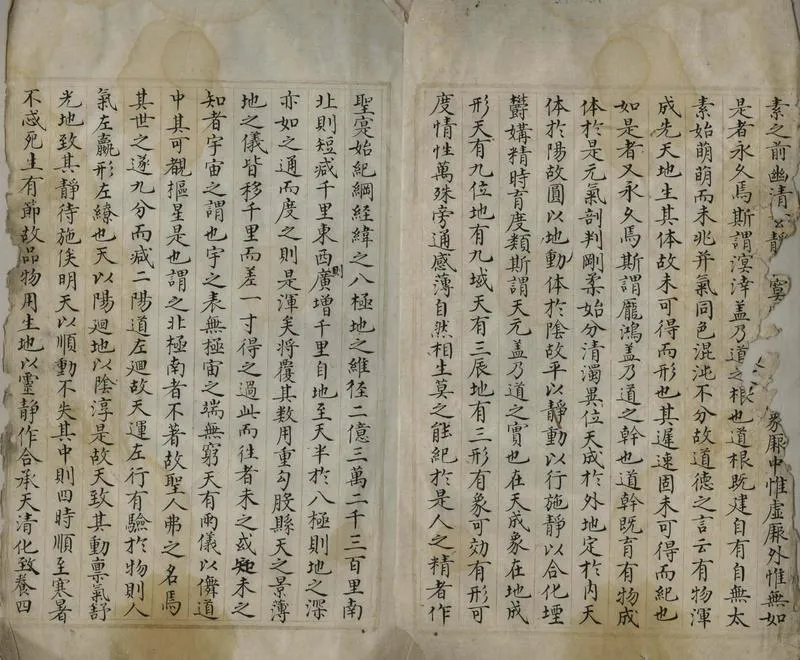 素之前幽清靜寞象厥中惟虛厥外惟無如
是者永久焉斯謂溟涬盖乃道之根也道根既建自有自無太
素始萌萌而未兆并氣同色混沌不分故道德之言云有物渾
成先天地生其体故未可得而形也其遲速固未可得而紀也
如是者又永久焉斯謂龐鴻盖乃道之幹也道幹既育有物成
体於是元氣剖判剛柔始分清濁異位天成於外地定於内天
体於陽故圓以地動体於陰故平以靜動以行施靜以合化堙
欝媾精時育度類斯謂天元盖乃道之實也在天成象在地成
形天有九位地有九域天有三辰地有三形有象可効有形可
度情性萬殊旁通感薄自然相生莫之能紀於是人之精者作
聖寔始紀綱経緯之八極地之維径二億三萬二千三百里南
北則短減千里東西則廣增千里自地至天半於八極則地之深
亦如之通而度之則是渾矣將覆其数用重勾股縣天之景薄
地之儀皆移千里而差一寸得之過此而往者未之或知未之
知者宇宙之謂也宇之表無極宙之端無窮天有兩儀以儛道
中其可覩樞星是也謂之北極南者不著故聖人弗之名焉
其世之遂九分而減二陽道左廻故天運左行有驗於物則人
氣左羸形左繚也天以陽廻地以陰淳是故天致其動禀氣舒
光地致其靜待施侯明天以順動不失其中則四時順至寒暑
不惑死生有節故品物用生地以靈靜作合承天清化致養四